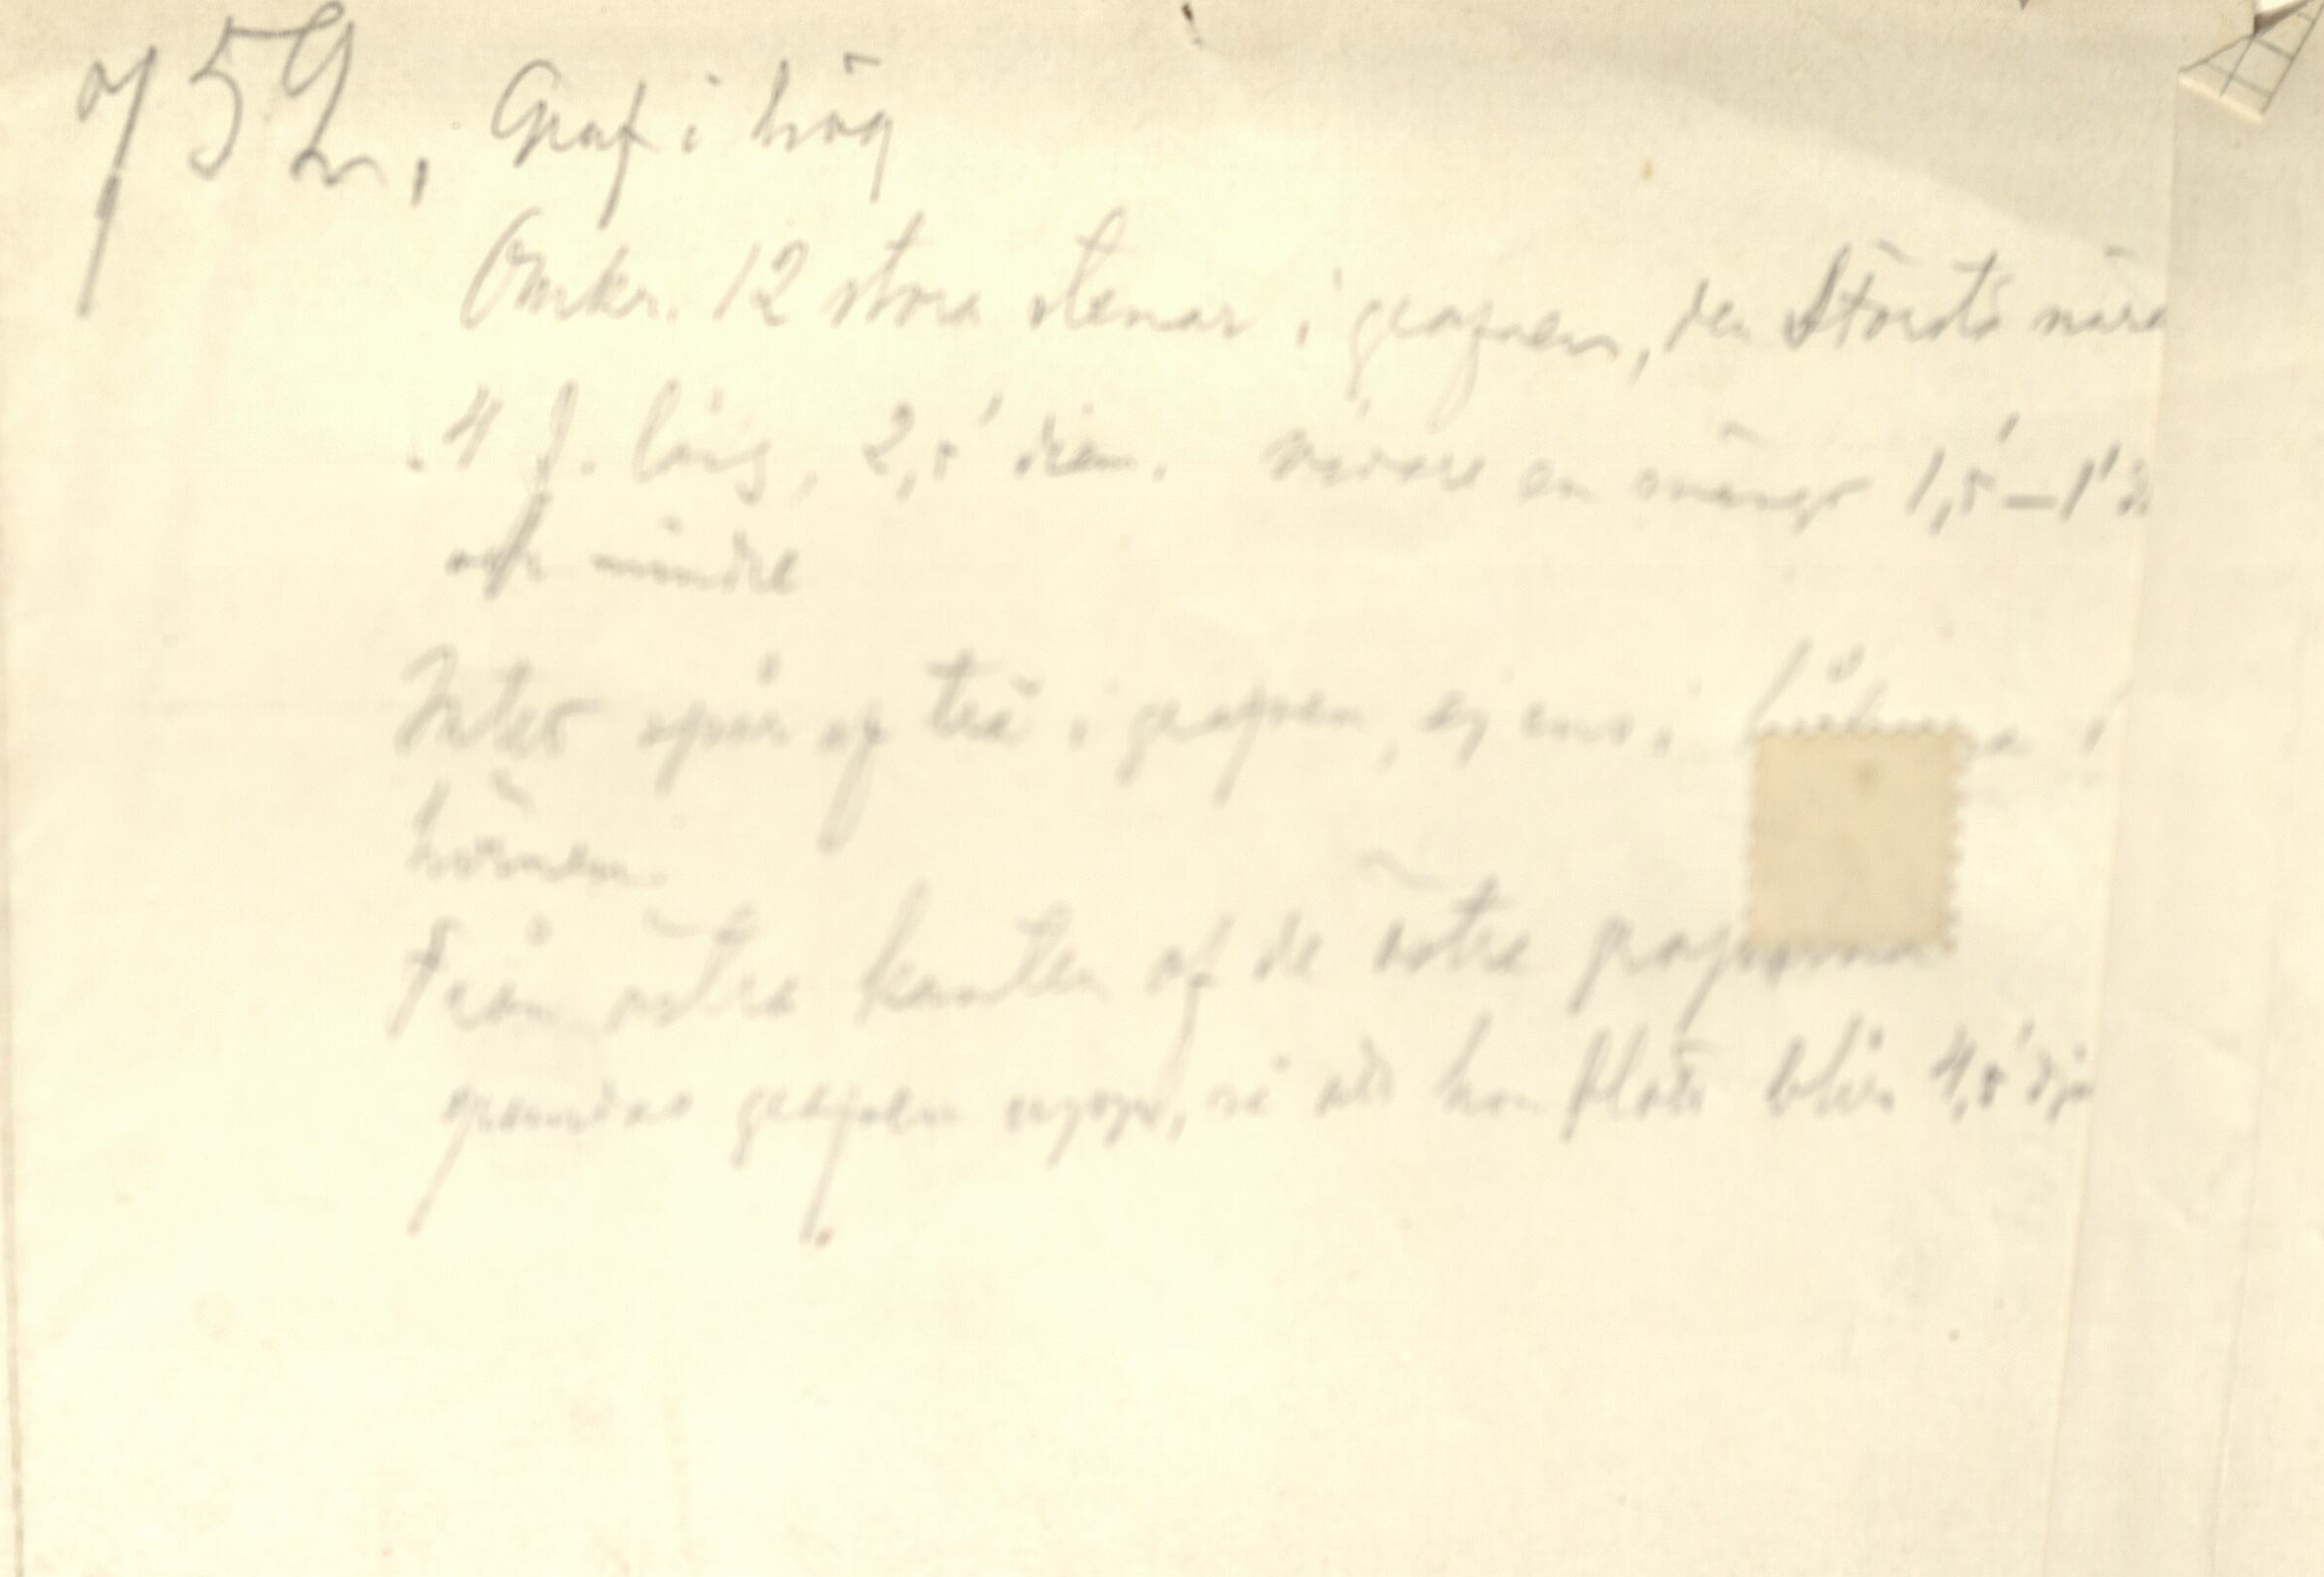 752. Graf i hög
Omkr. 12 stora stenar i grafven, den största nära
4 f. lång, 2,5' diam. vidare en mängd 1,5'—1'
och mindre
Intet spår af trä i grafven, ej ens i hålorna i
hörnen.
Från östra kanten af de östra
grafven upp, så att hon blir 4,5' dju